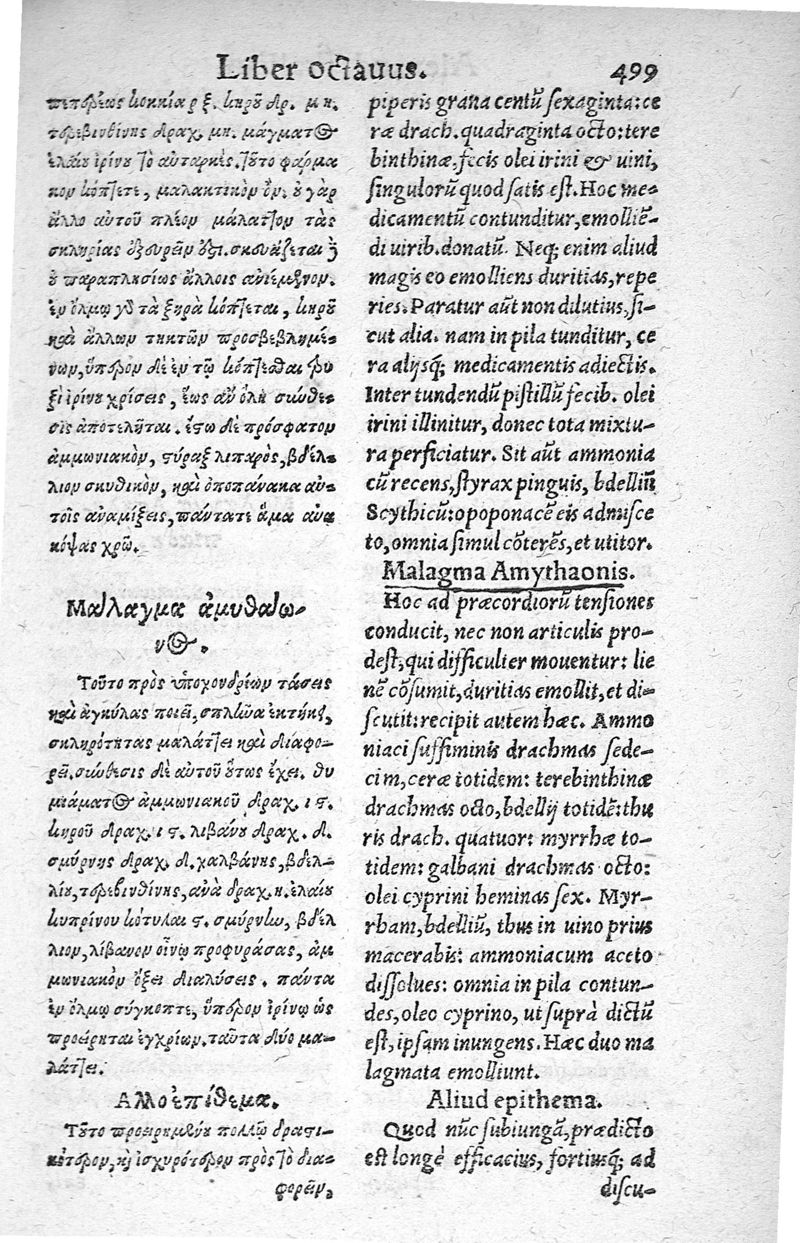 Liber octauus. 499
πεπέρεως κοκκία ρξ. κηροῦ δρ. μη.
τερεβινθίνης δραχ. μη. μάγματος
ἐλαίου ἰρίνου τὸ αὐταρκές. τοῦτο φάρμα
κον κόπτετε, μαλακτικὸν ὄν. οὐ γὰρ
ἄλλο αὐτοῦ πλέον μάλαττον τὰς
σκληρίας ἐξευρεῖν ἔστι. σκευάζεται δὲ
οὐ παραπλησίως ἄλλοις ἀνιέμενον.
ἐν ὅλμῳ γὰρ τὰ ξηρὰ κόπτεται, κηροῦ
καὶ ἄλλων τηκτῶν προσβεβλημέ-
νων, ὕπερον δὲ ἐν τῷ κόπτεσθαι τρυ
ξὶ ἰρίνου χρίσεις, ἕως ἂν ὅλη σύνθε-
σις ἀποτελῆται. ἔστω δὲ πρόσφατον
ἀμμωνιακὸν, στύραξ λιπαρὸς, βδέλ-
λιον σκυθικὸν, καὶ ὀποπάνακα αὐ-
τοῖς ἀναμίξεις, πάντα τε ἅμα ἀνα
κόψας χρῶ.
Μάλαγμα ἀμυθάω-
νος.
Τοῦτο πρὸς ὑποχονδρίων τάσεις
καὶ ἀγκύλας ποιεῖ, σπλῆνα ἐκτήκει,
σκληρότητας μαλάττει καὶ διαφο-
ρεῖ. σύνθεσις δὲ αὐτοῦ οὕτως ἔχει. θυ
μιάματος ἀμμωνιακοῦ δραχ. ις.
κηροῦ δραχ. ις. λιβάνου δραχ. δ.
σμύρνης δραχ. δ. χαλβάνης, βδελ-
λίου, τερεβινθίνης, ἀνὰ δραχ. η. ἐλαίου
κυπρίνου κότυλαι ς. σμύρνην, βδέλ
λιον, λίβανον οἴνῳ προφυράσας, ἀμ
μωνιακὸν ὄξει διαλύσεις. πάντα
ἐν ὅλμῳ σύγκοπτε, ὕπερον ἰρίνῳ ὡς
προείρηται ἐγχρίων. ταῦτα δύο μα-
λάττει.
Ἄλλο ἐπίθεμα.
Τοῦτο προειρημένου πολλῷ δραστι-
κώτερον, καὶ ἰσχυρότερον πρὸς τὸ δια-
φορεῖν,
piperis grana centũ sexaginta: ce
ræ drach. quadraginta octo: tere
binthinæ, fecis olei irini & uini,
singulorũ quod satis est. Hoc me-
dicamentũ contunditur, emolliẽ-
di uirib. donatũ. Neq; enim aliud
magis eo emolliens duritias, repe
ries. Paratur aũt non dilutius, si-
cut alia. nam in pila tunditur, ce
ra alijsq; medicamentis adiectis.
Inter tundendũ pistillũ fecib. olei
irini illinitur, donec tota mixtu-
ra perficiatur. Sit aũt ammonia
cũ recens, styrax pinguis, bdelliũ
Scythicũ: opoponacẽ eis admisce
to, omnia simul cõterẽs, et utitor.
Malagma Amythaonis.
Hoc ad præcordiorũ tensiones
conducit, nec non articulis pro-
dest, qui difficulter mouentur: lie
nẽ cõsumit, duritias emollit, et di-
scutit: recipit autem hæc. Ammo
niaci suffiminis drachmas sede-
cim, ceræ totidem: terebinthinæ
drachmas octo, bdellij totidẽ: thu
ris drach. quatuor: myrrhæ to-
tidem: galbani drachmas octo:
olei cyprini heminas sex. Myr-
rham, bdelliũ, thus in uino prius
macerabis: ammoniacum aceto
dissolues: omnia in pila contun-
des, oleo cyprino, ut suprà dictũ
est, ipsam inungens. Hæc duo ma
lagmata emolliunt.
Aliud epithema.
Quod nũc subiungã, prædicto
est longè efficacius, fortiusq; ad
discu-